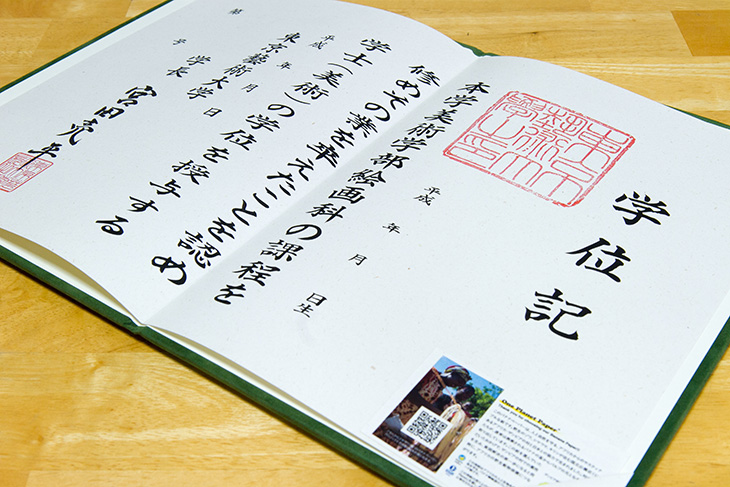 学位記
平成 年 月 日生
本学美術学部絵画科の課程を
修めその業を卒えたことを認め
学士(美術)の学位を授与する
平成 年 月 日
東京藝術大学学長
宮田亮平
第 号
One Planet Paper